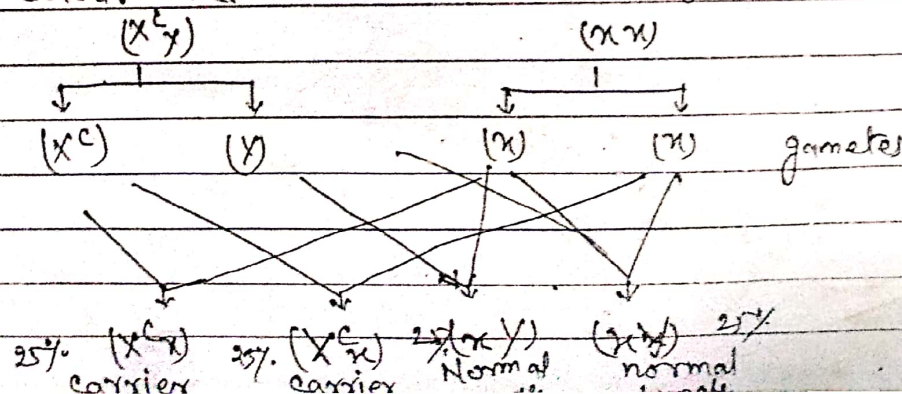 (X^c y) (x x)
(X^c) (Y) (x) (x) gametes
25% (X^c x) 25% (X^c x) 25% (x Y) (x Y) 25%
carrier carrier Normal normal